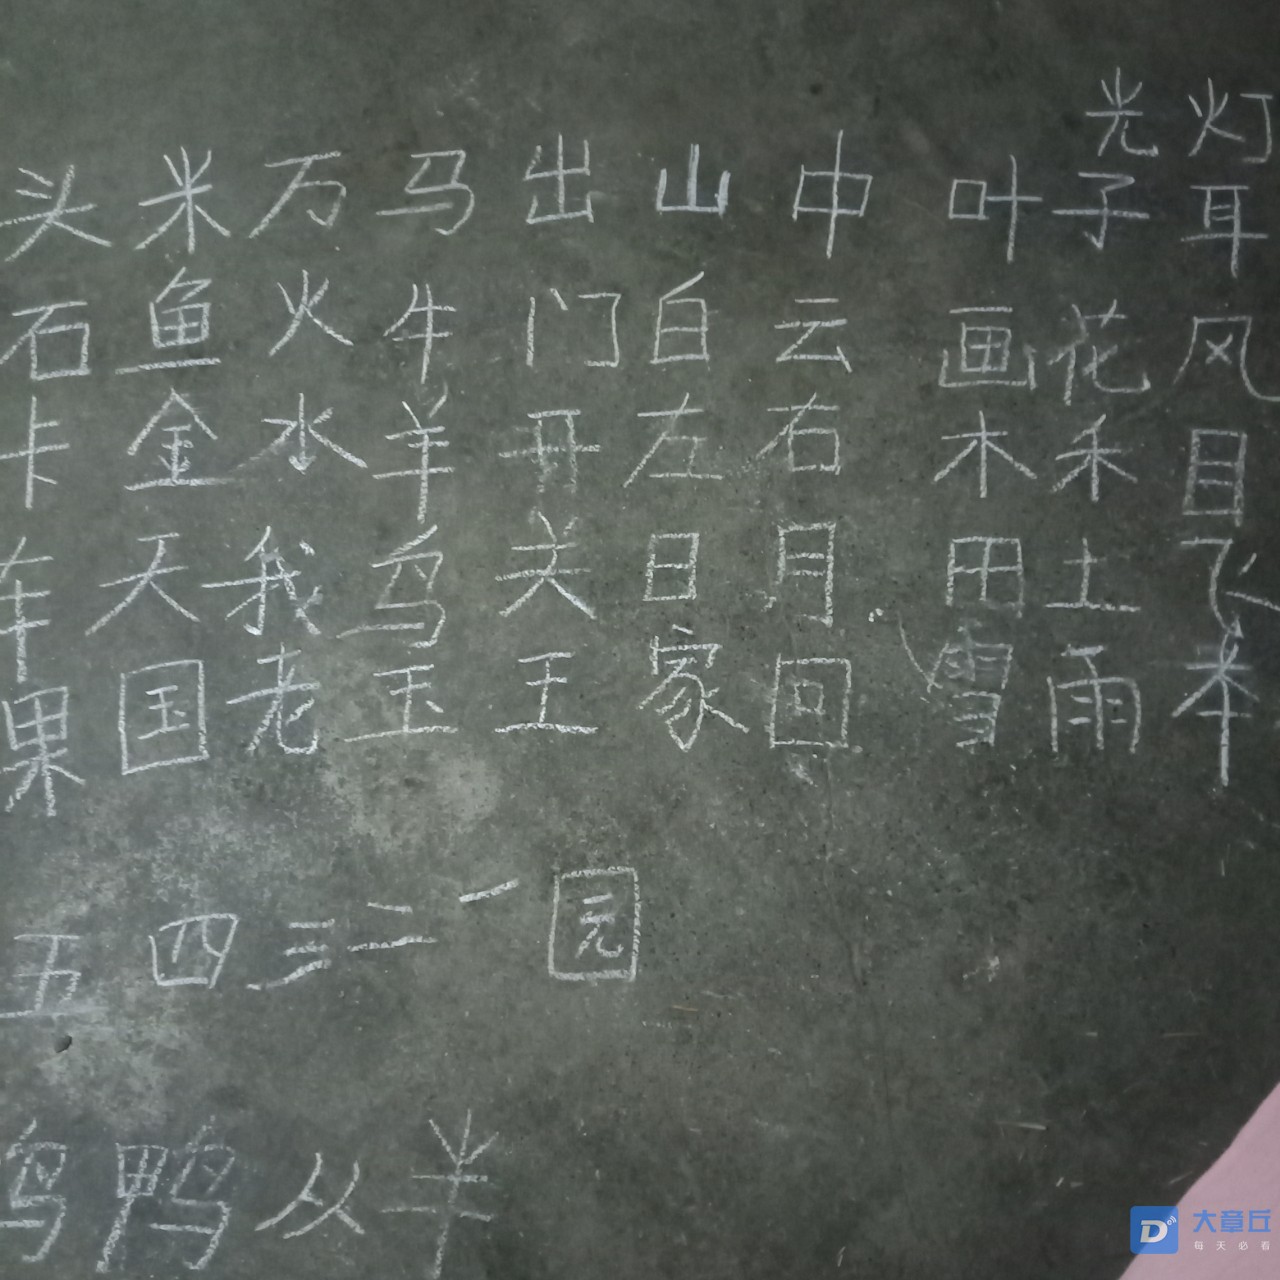 光 灯
头 米 万 马 出 山 中 叶 子 耳
石 鱼 火 牛 门 白 云 画 花 风
卡 金 水 羊 开 左 右 木 禾 目
车 天 我 鸟 关 日 月 田 土 飞
果 国 老 玉 王 家 回 雪 雨 本
五 四 三 二 一 园
鸭 从 半
大章丘
每天必看